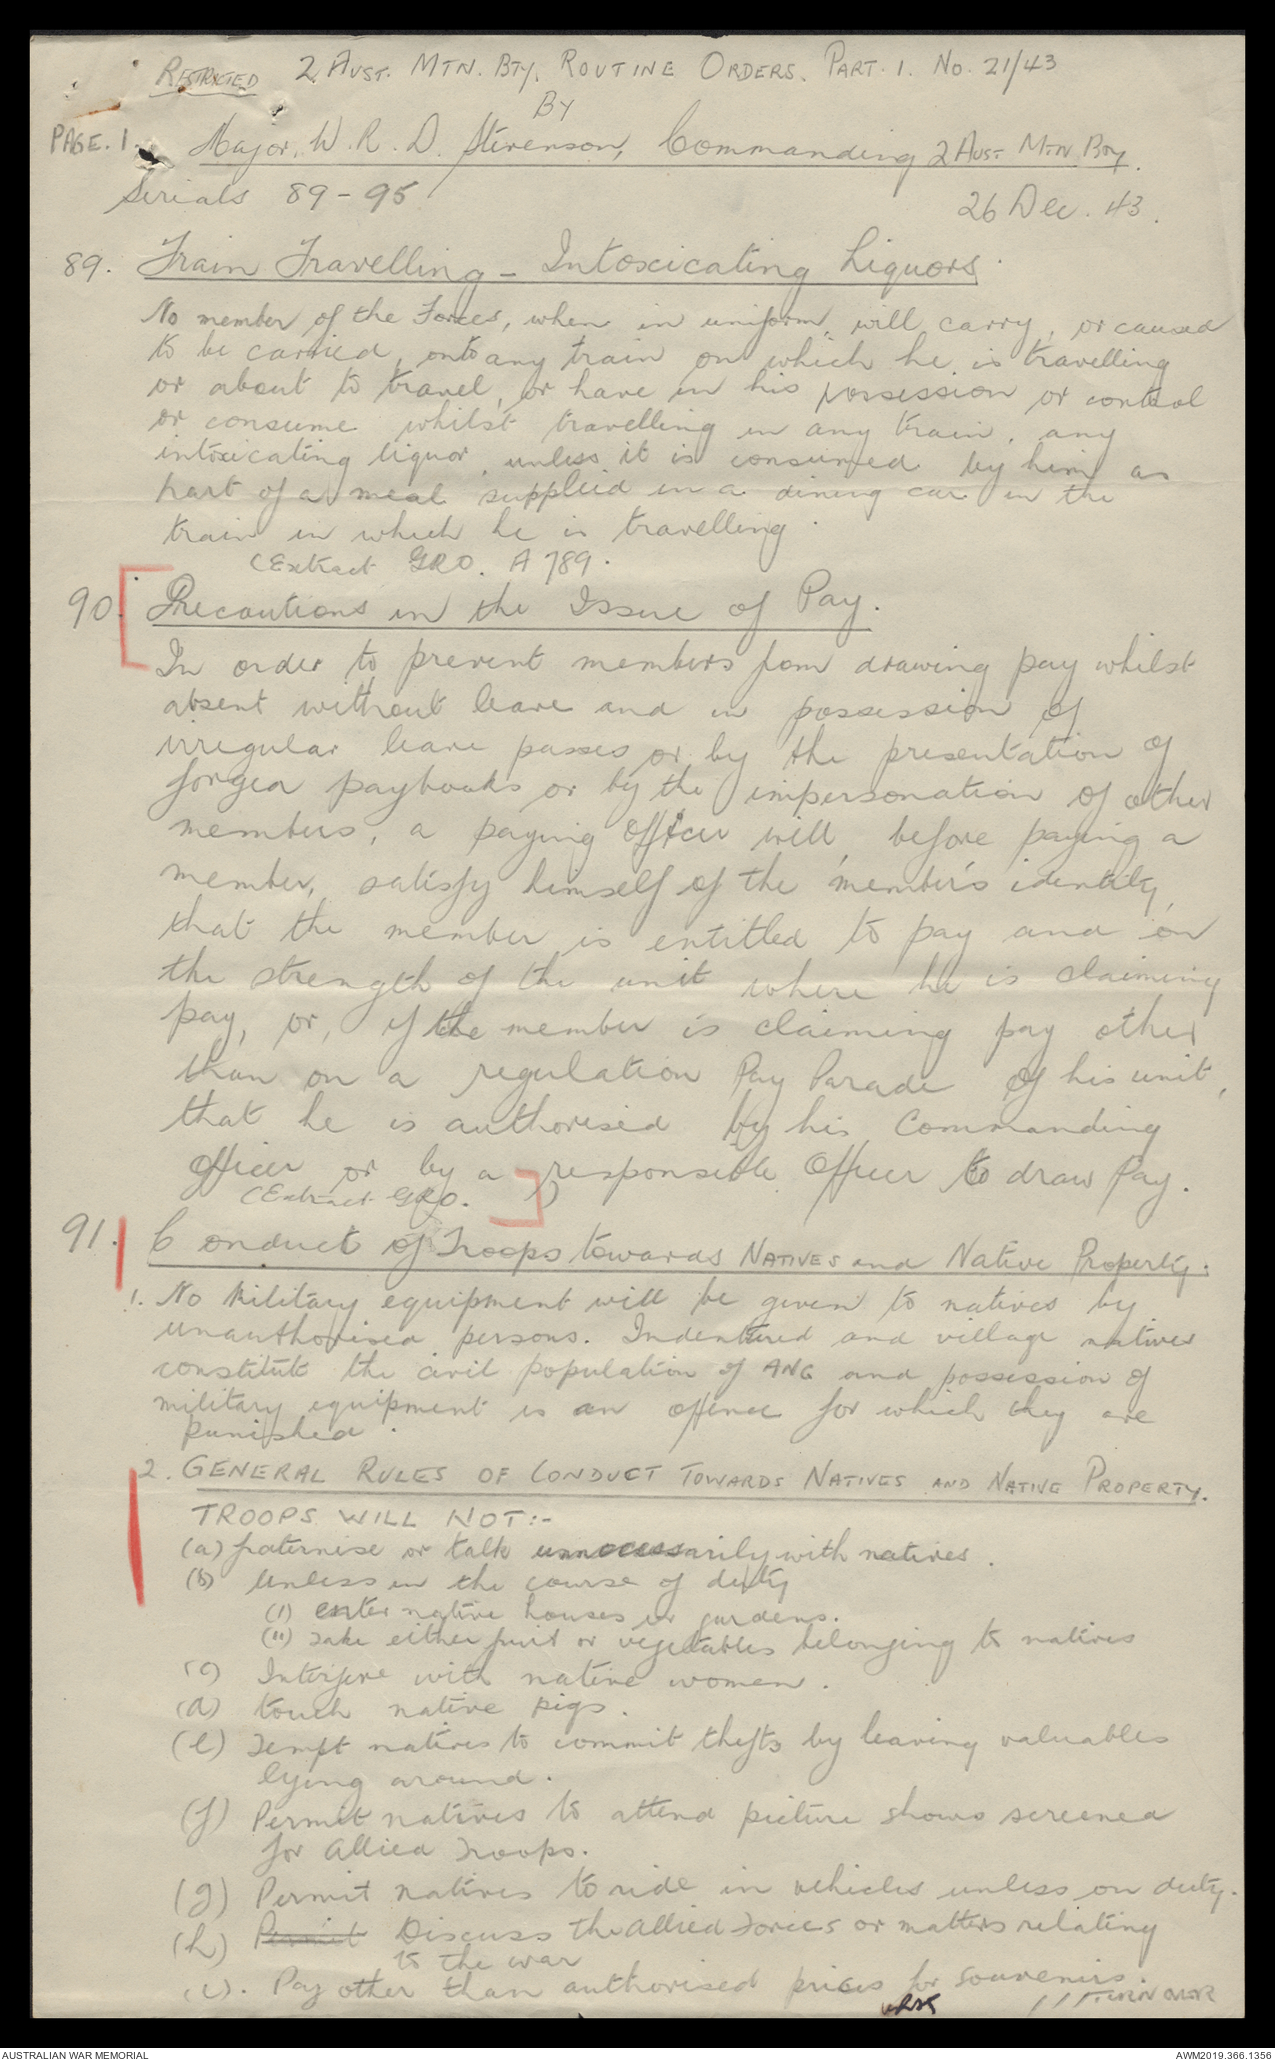 RESTRICTED 2 AUST. MTN. BTY. ROUTINE ORDERS. PART. 1. No. 21/43
BY
PAGE. 1. Major. W. R. D. Stevenson, Commanding 2 AUST MTN BTY.
Serials 89-95
26 Dec. 43.
89. Train Travelling - Intoxicating Liquors.
No member of the Forces, when in uniform, will carry, or caused
to be carried, onto any train on which he is travelling
or about to travel, or have in his possession or control
or consume whilst travelling in any train, any
intoxicating liquor, unless it is consumed by him as
part of a meal supplied in a dining car in the
train in which he is travelling.
(Extract GRO. A 789.
90. Precautions in the Issue of Pay.
In order to prevent members from drawing pay whilst
absent without leave and in possession of
irregular leave passes or by the presentation of
forged paybooks or by the impersonation of other
members, a paying officer will, before paying a
member, satisfy himself of the member's identity,
that the member is entitled to pay and on
the strength of the unit where he is claiming
pay, or, if the member is claiming pay other
than on a regulation Pay Parade of his unit,
that he is authorised by his Commanding
Officer or by a responsible Officer to draw Pay.
(Extract GRO. )
91. Conduct of Troops towards NATIVES and Native Property.
1. No Military equipment will be given to natives by
unauthorised persons. Indentured and village natives
constitute the civil population of ANG and possession of
military equipment is an offence for which they are
punished.
2. GENERAL RULES OF CONDUCT TOWARDS NATIVES AND NATIVE PROPERTY.
TROOPS WILL NOT:-
(a) fraternise or talk unnecessarily with natives.
(b) Unless in the course of duty
(i) enter native houses or gardens.
(ii) Take either fruit or vegetables belonging to natives
(c) Interfere with native women.
(d) touch native pigs.
(e) Tempt natives to commit thefts by leaving valuables
lying around.
(f) Permit natives to attend picture shows screened
for Allied Troops.
(g) Permit natives to ride in vehicles unless on duty.
(h) Permit Discuss the Allied Forces or matters relating
to the war
(i). Pay other than authorised prices for souvenirs.
/ / / TURN OVER
AUSTRALIAN WAR MEMORIAL
AWM2019.366.1356